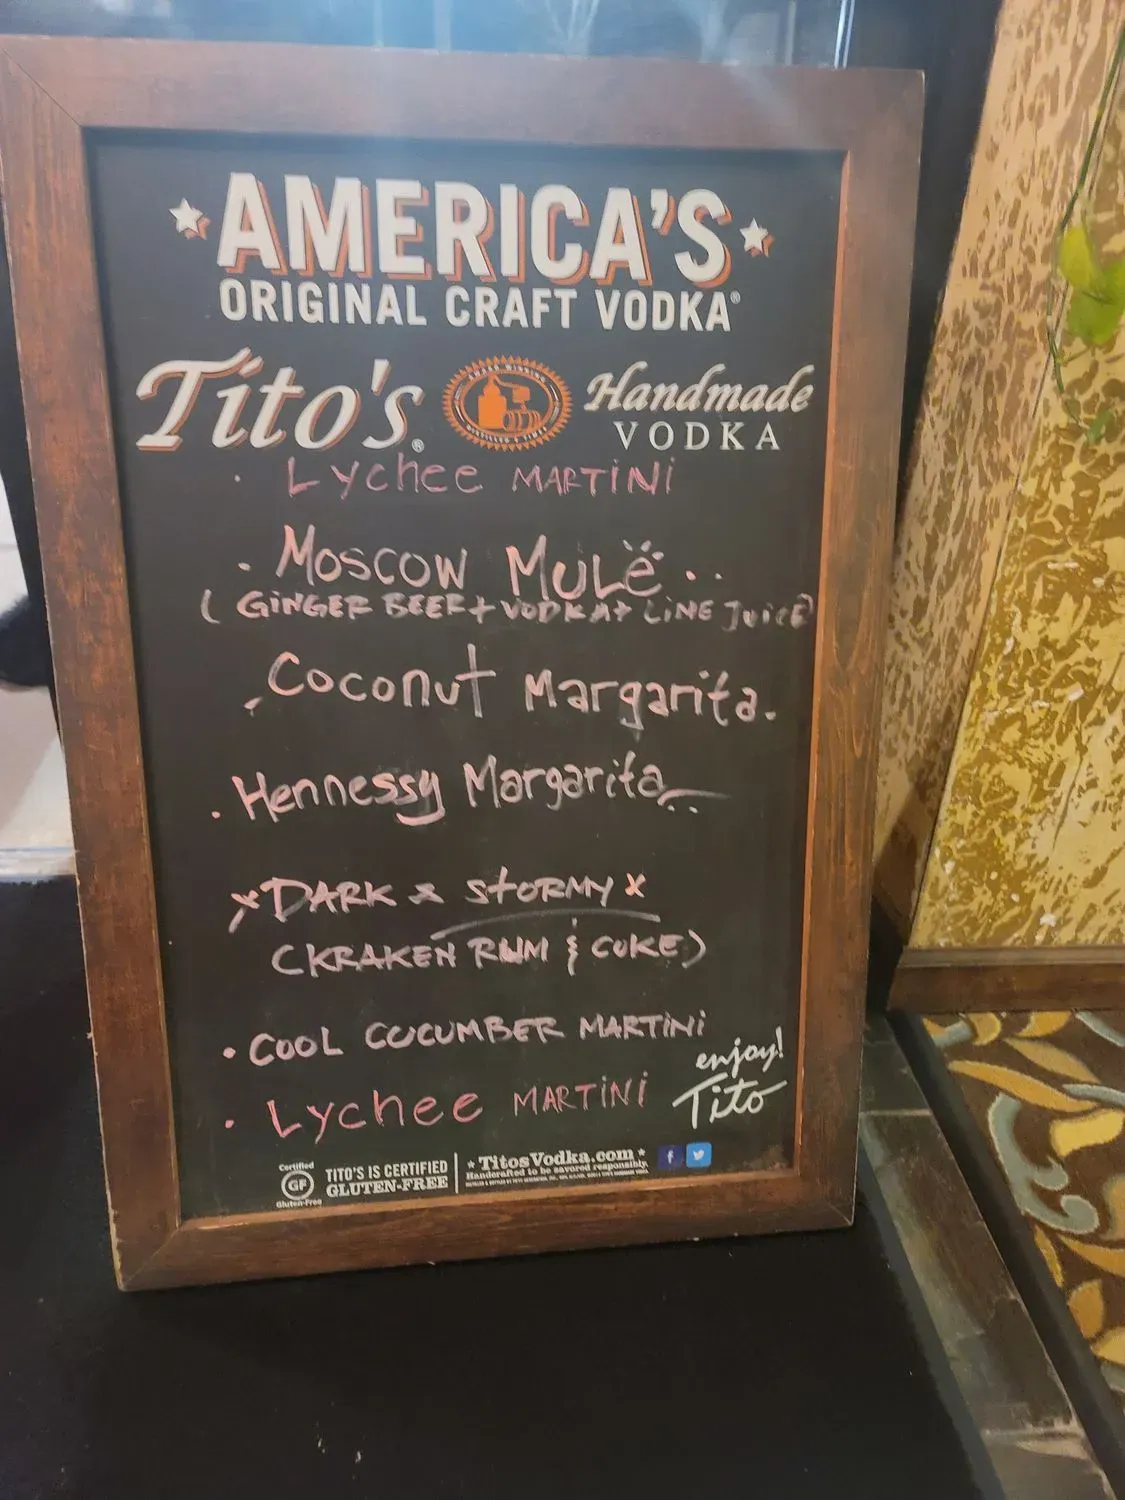 AMERICA'S
ORIGINAL CRAFT VODKA®
Tito's® Handmade
VODKA
. Lychee MARTINI
. MOSCOW MULE..
( GINGER BEER + VODKA + LINE JUICE)
. Coconut Margarita.
. Hennessy Margarita
x DARK & STORMY x
(KRAKEN RUM & COKE)
. COOL CUCUMBER MARTINI
. Lychee MARTINI
enjoy!
Tito
Certified
GF
Gluten-Free
TITO'S IS CERTIFIED
GLUTEN-FREE
TitosVodka.com
Handcrafted to be savored responsibly.